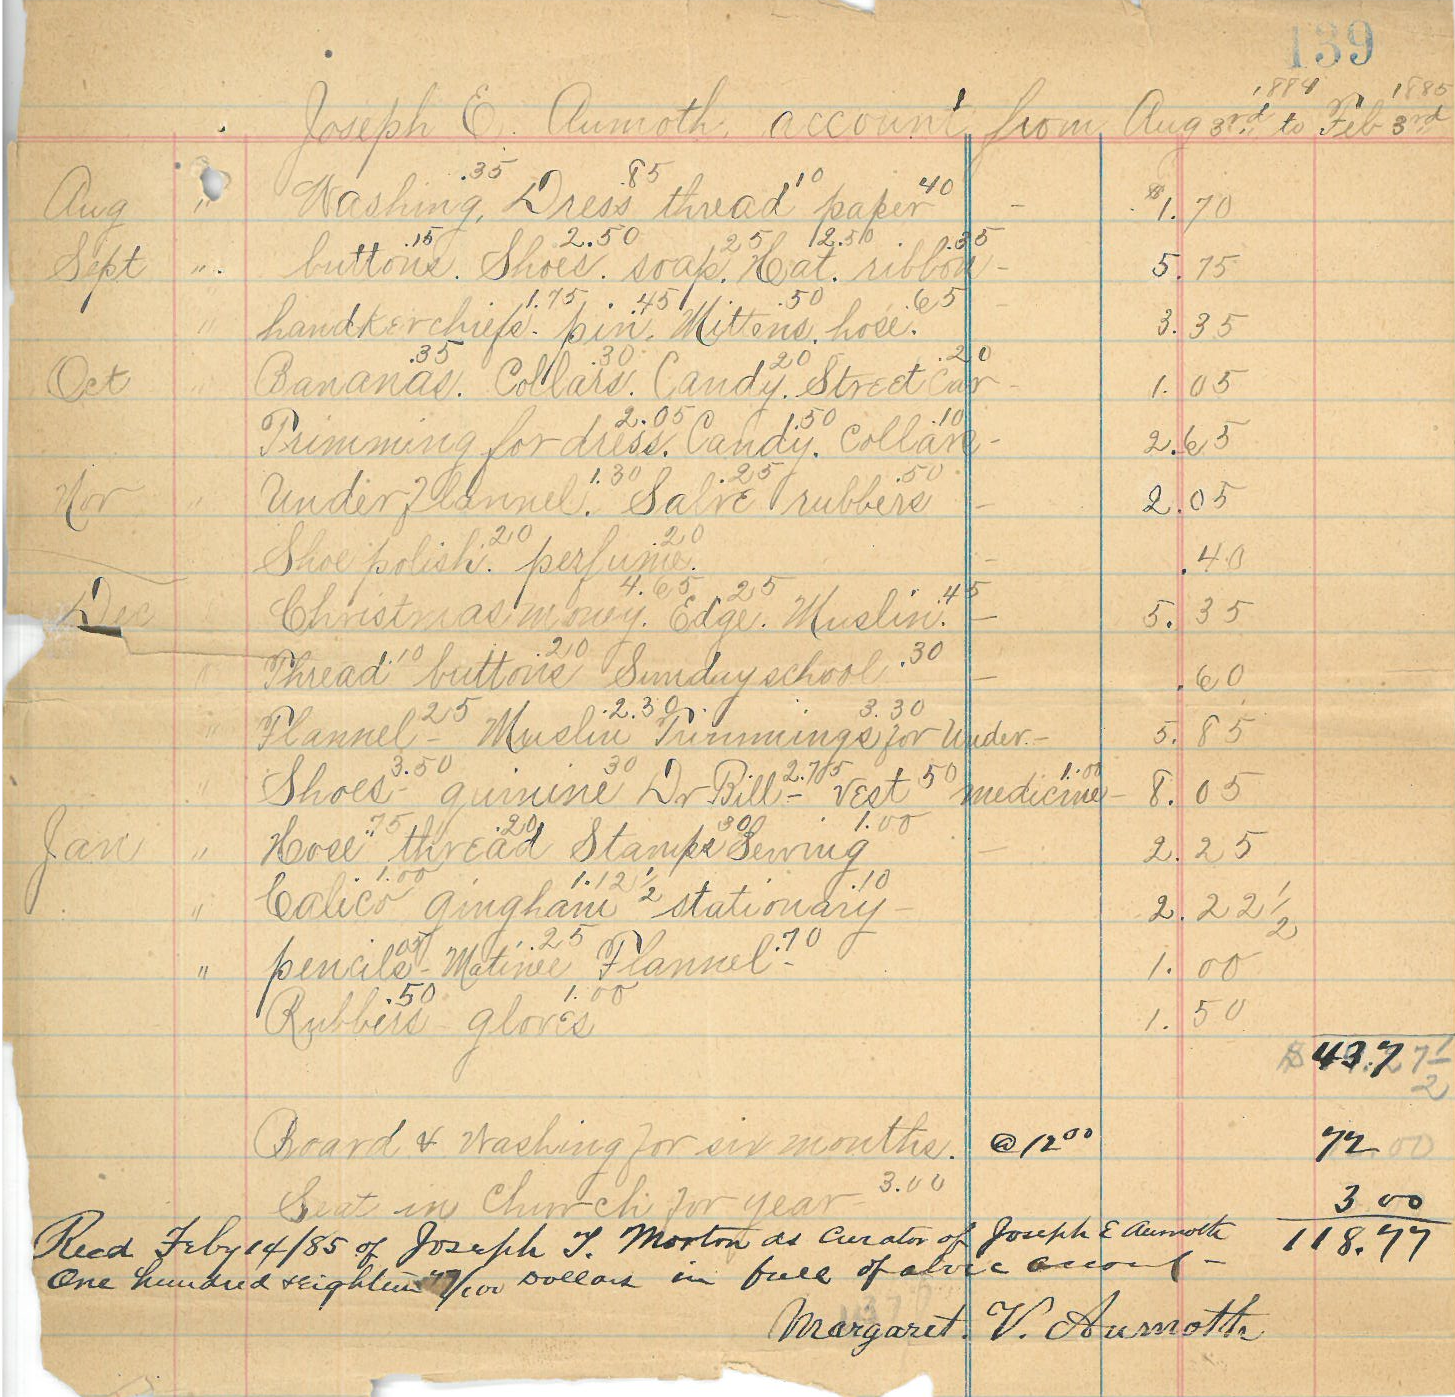 139
1884 1885
Joseph E. Aumoth, account from Aug 3rd to Feb 3rd
Aug " Washing, .35 Dress .85 thread 10 paper 40 - $1.70
Sept " buttons .15 Shoes. 2.50 soap. 25 Hat. 2.50 ribbon .35 - 5.75
" handkerchiefs. 1.75 pin. .45 Mittens. .50 hose. .65 - 3.35
Oct " Bananas. .35 Collars. .30 Candy. 20 Street Car .20 - 1.05
Trimming for dress. 2.05 Candy. .50 Collars .10 - 2.65
Nov " Underflannel. 1.30 Salve .25 rubbers .50 - 2.05
Shoe polish. 20 perfume. 20 - .40
Dec " Christmas money. 4.65 Edge. 25 Muslin. .45 - 5.35
" Thread 10 buttons 20 Sunday school .30 - .60
" Flannel 25 - Muslin 2.30 Trimmings for Under. 3.30 - 5.85
" Shoes 3.50 - quinine 30 Dr Bill 2.75 - vest 50 medicine 1.00 - 8.05
Jan " Hose .75 thread .20 Stamps 30 Sewing 1.00 - 2.25
" Calico 1.00 gingham 1.12 1/2 stationary .10 - 2.22 1/2
" pencils .05 - Matinee .25 Flannel .70 - 1.00
Rubbers .50 - gloves 1.00 1.50
$ 43.7
Board & Washing for six months. @ 12 00 72.00
Seat in Church for year 3.00 3 00
118.77
Recd Feby 14/85 of Joseph T. Morton as Curator of Joseph E Aumoth
One hundred & Eighteen 77/100 Dollars in full of above account -
Margaret. V. Aumoth